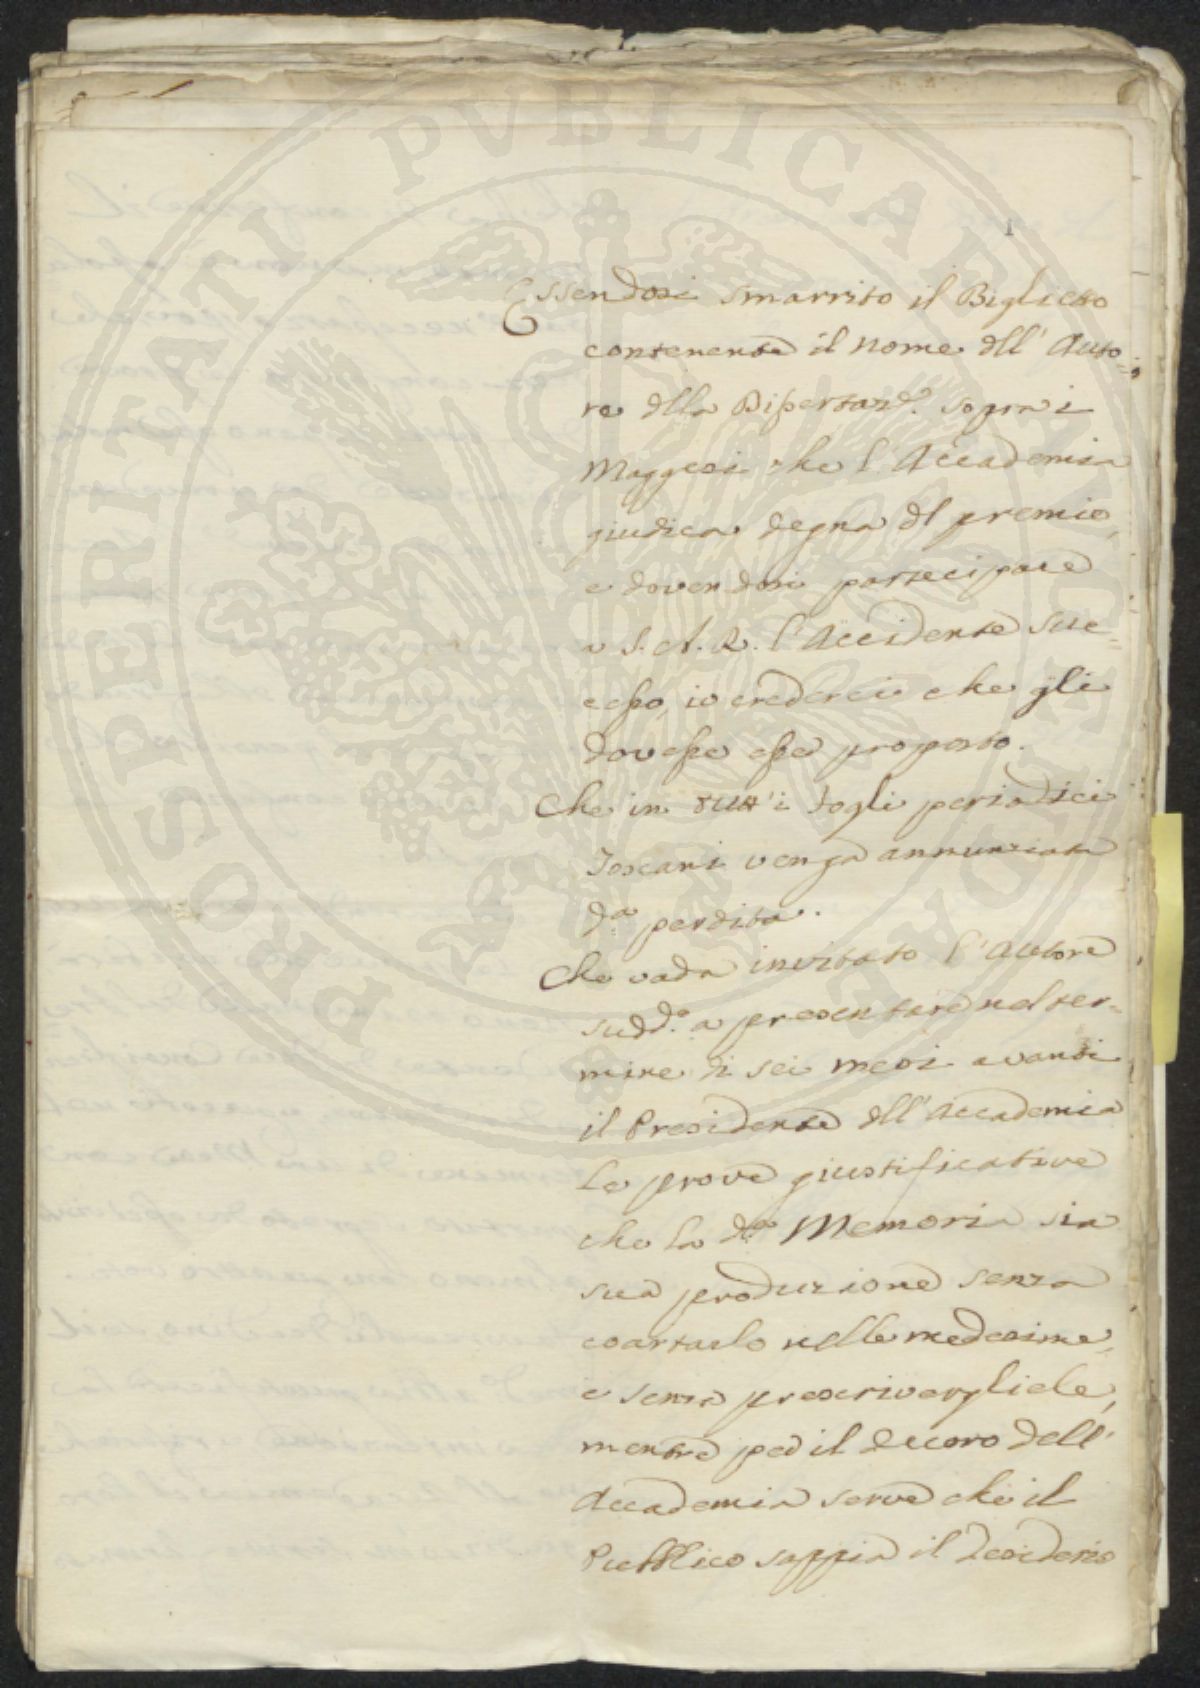 1
Essendosi smarrito il Biglietto
contenente il nome dll' Auto-
re dlla Dissertaz.e sopra i
Maggesi che l'Accademia
giudica degna dl premio,
e dovendosi partecipare
a S. A. R. l'Accidente suc=
cesso, io crederei che gli
dovesse esse proposto.
Che in tutt'i fogli periodici
Toscani venga annunziata
d.a perdita.
Che vada invitato l'Autore
sudd.o a presentare nel ter-
mine di sei mesi avanti
il Presidente dll'Accademia
le prove giustificative
che la d.a Memoria sia
sua produzione senza
coartarlo nelle medesime,
e senza prescrivergliele,
mentre per il decoro dell'
Accademia serve che il
Pubblico sappia il desiderio
PROSPERITATI PVBLICAE AVGENDAE